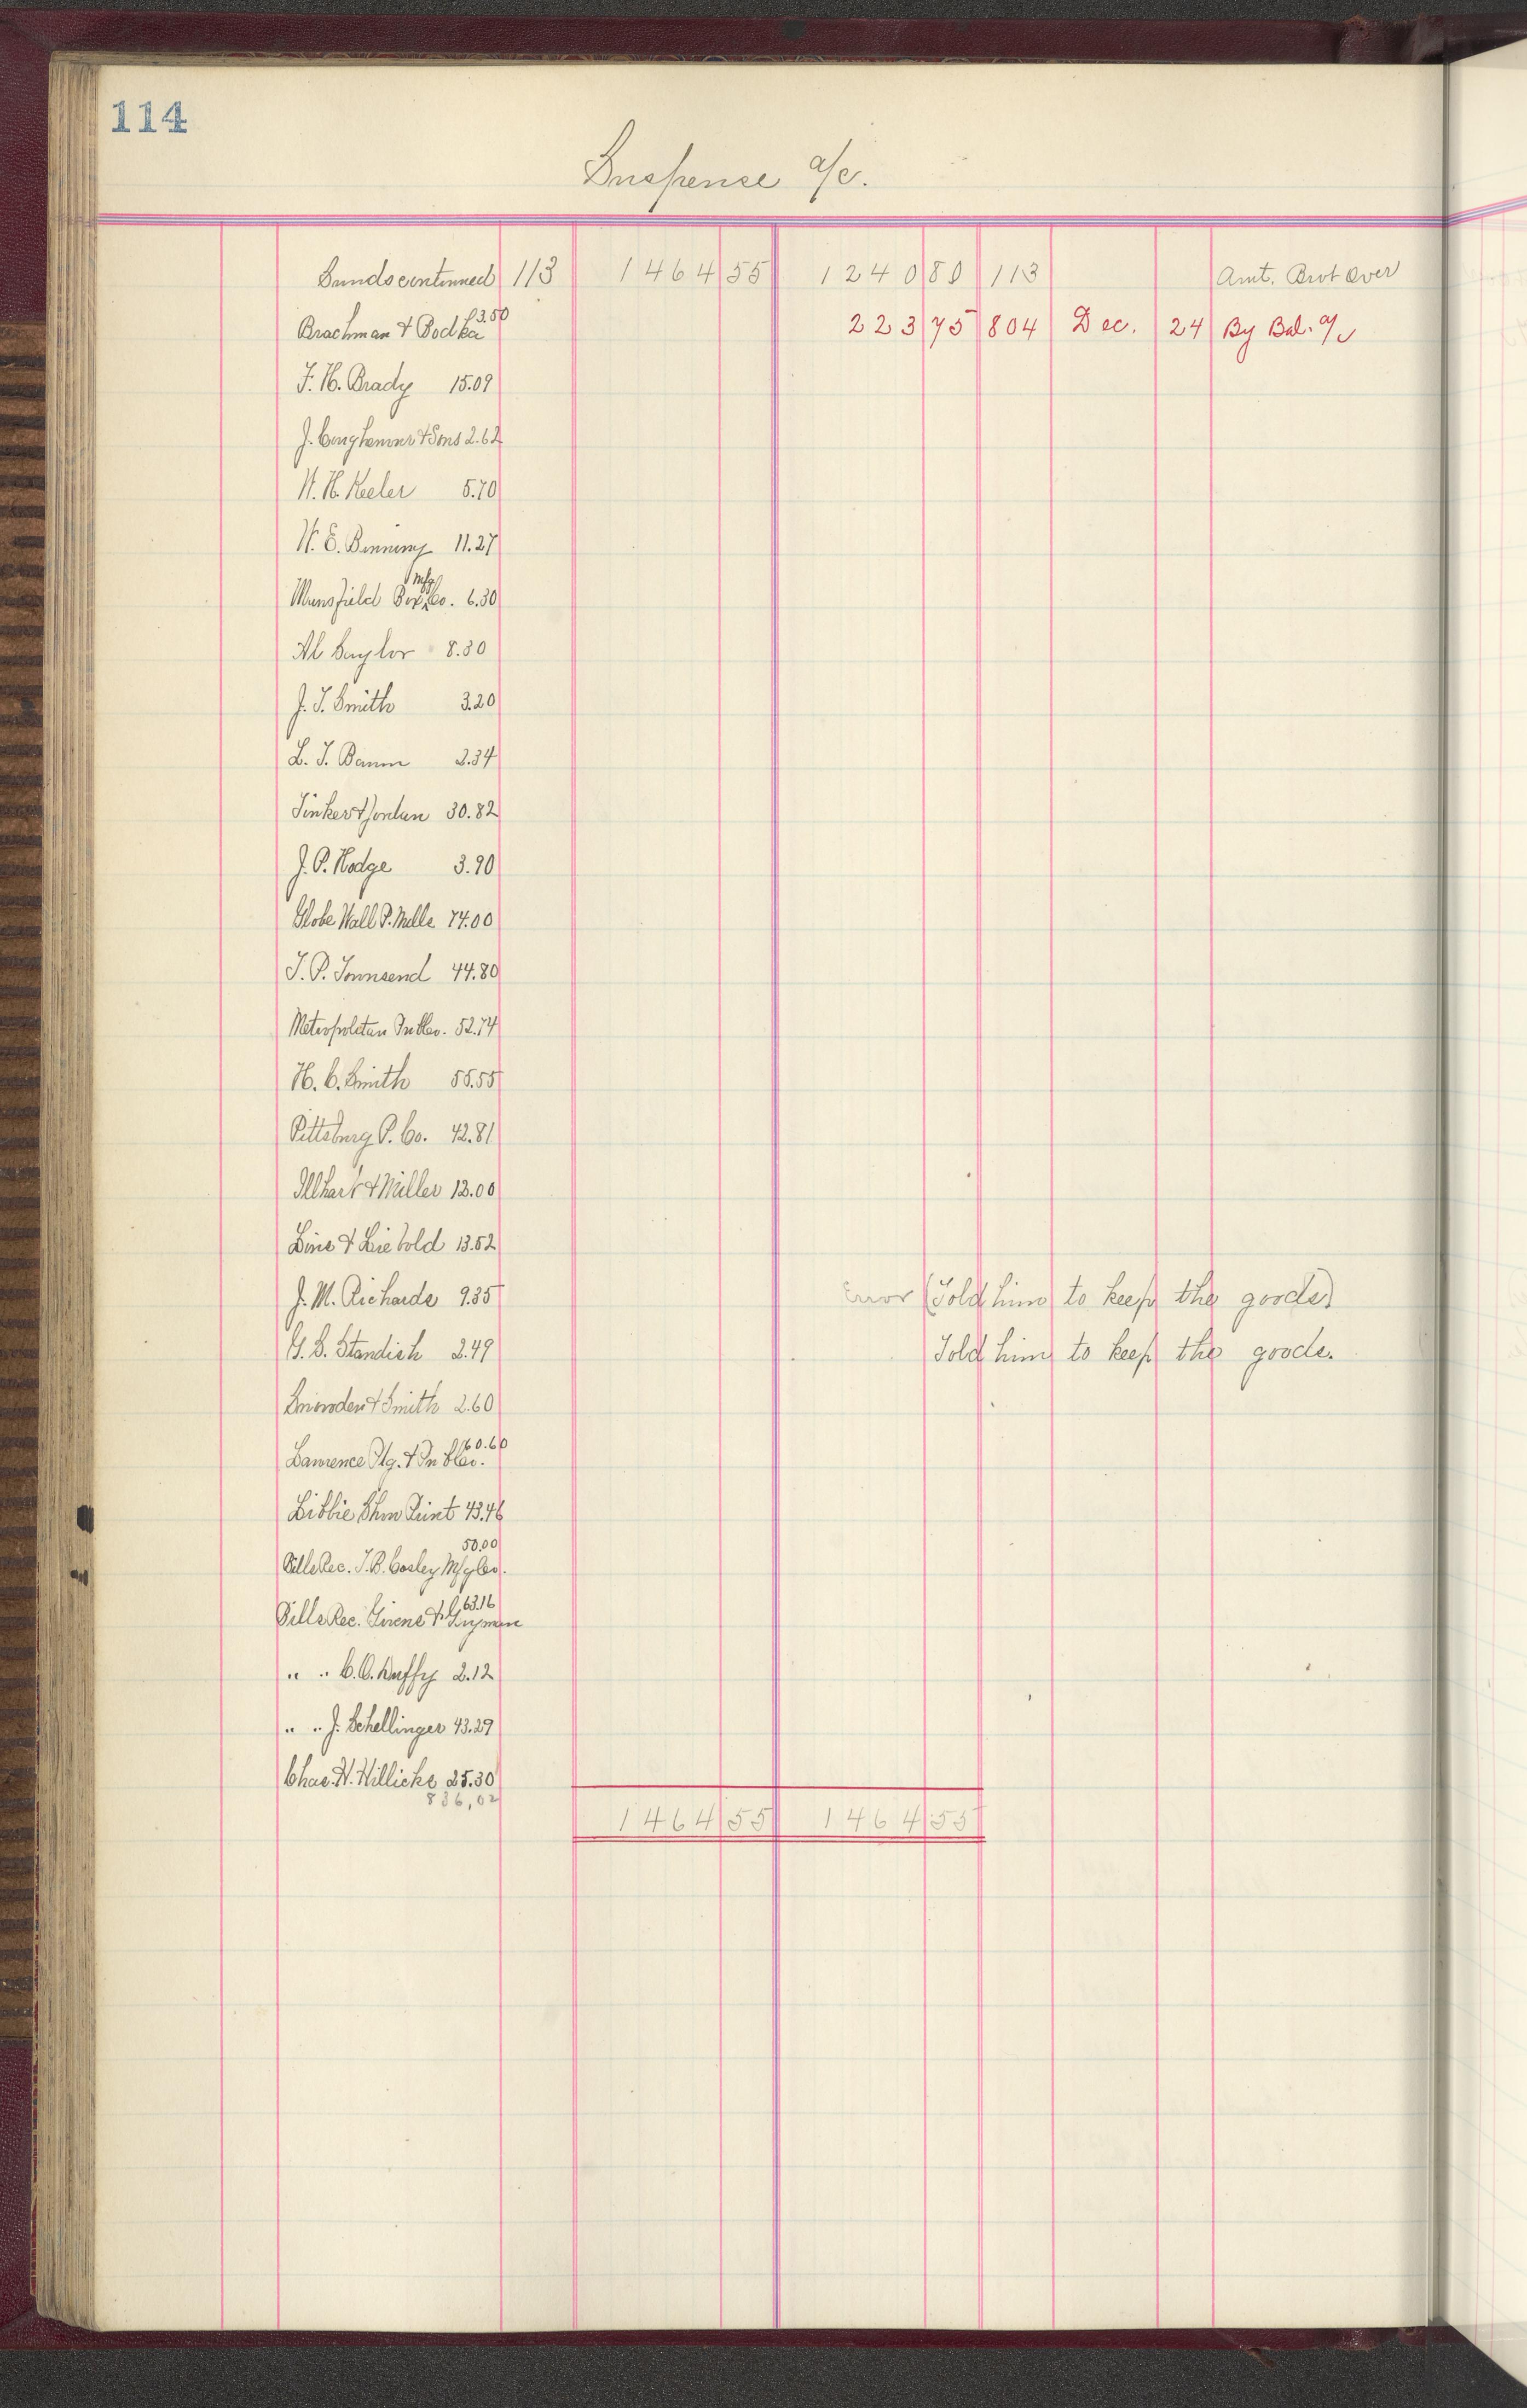 114
Suspense a/c.
Sunds continued 113 1464 55 1240 80 113 Amt. Brot Over
3.50
Brachman & Podka 223 75 804 Dec. 24 By Bal. a/c
F. H. Brady 15.09
J. & Sons 2.62
W. H. Keeler 5.70
W. E. 11.27
Mfg
Mansfield Box Co. 6.30
Al Saylor 8.30
J. T. Smith 3.20
L. J. Baum 2.34
Tinker & 30.82
J. P. Hodge 3.90
Globe Wall P. Mills 74.00
J. P. Townsend 44.80
Metropolitan 52.74
H. C. Smith 55.55
Pittsburg P. Co. 42.81
& Miller 12.00
& Liebold 13.52
J. M. Richards 9.35 Error (Told him to keep the goods)
Standish 2.49 Told him to keep the goods.
Snowden & Smith 2.60
60.60
Lawrence
43.46
50.00
Bills Rec. J. B. Cosley Mfg Co.
63.16
Bills Rec. & Lyman
" " C. O. Duffy 2.12
" " J. Schellinger 43.29
Chas. W. Willicks 25.30
836,02
1464 55 1464 55